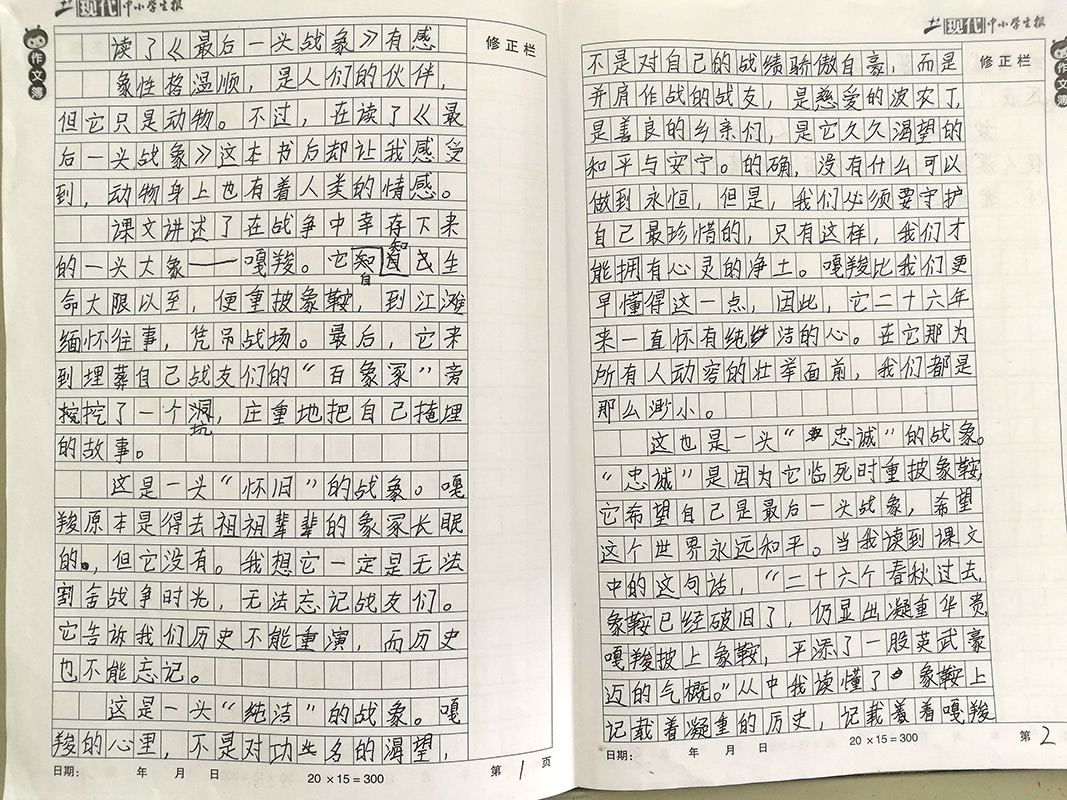 现代中小学生报
作文簿
修正栏
读了《最后一头战象》有感
象性格温顺，是人们的伙伴，
但它只是动物。不过，在读了《最
后一头战象》这本书后却让我感受
到，动物身上也有着人类的情感。
课文讲述了在战争中幸存下来
的一头大象——嘎羧。它自知生
命大限以至，便重披象鞍，到江滩
缅怀往事，凭吊战场。最后，它来
到埋葬自己战友们的“百象冢”旁
挖了一个坑，庄重地把自己掩埋
的故事。
这是一头“怀旧”的战象。嘎
羧原本是得去祖祖辈辈的象冢长眠
的，但它没有。我想它一定是无法
割舍战争时光，无法忘记战友们。
它告诉我们历史不能重演，而历史
也不能忘记。
这是一头“纯洁”的战象。嘎
羧的心里，不是对功名的渴望，
日期： 年 月 日
20×15=300
第1页
现代中小学生报
作文簿
修正栏
不是对自己的战绩骄傲自豪，而是
并肩作战的战友，是慈爱的波农丁
是善良的乡亲们，是它久久渴望的
和平与安宁。的确，没有什么可以
做到永恒，但是，我们必须要守护
自己最珍惜的，只有这样，我们才
能拥有心灵的净土。嘎羧比我们更
早懂得这一点，因此，它二十六年
来一直怀有纯洁的心。在它那为
所有人动容的壮举面前，我们都是
那么渺小。
这也是一头“忠诚”的战象。
“忠诚”是因为它临死时重披象鞍，
它希望自己是最后一头战象，希望
这个世界永远和平。当我读到课文
中的这句话，“二十六个春秋过去，
象鞍已经破旧了，仍显出凝重华贵
嘎羧披上象鞍，平添了一股英武豪
迈的气概。”从中我读懂了象鞍上
记载着凝重的历史，记载着嘎羧
日期： 年 月 日
20×15=300
第2